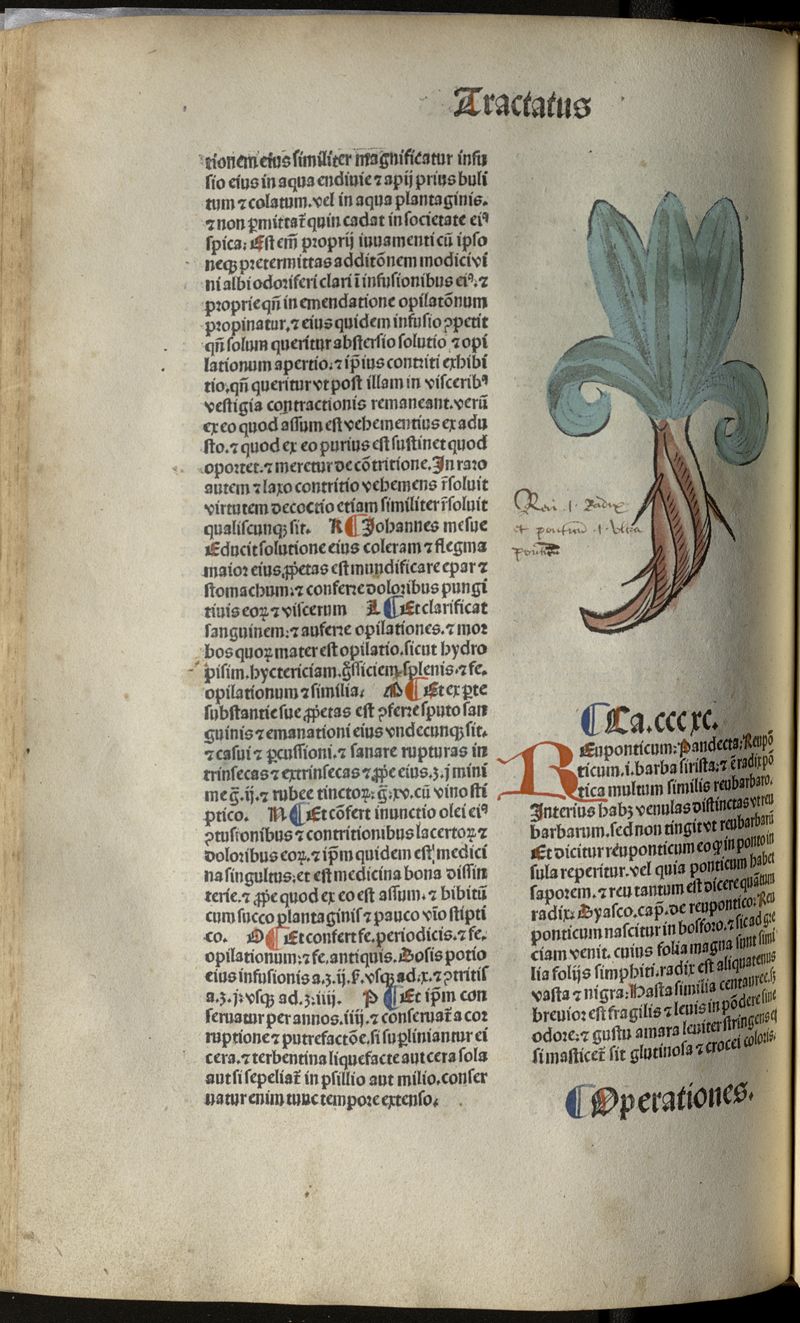 Tractatus
tionem eius similiter magnificatur infu
sio eius in aqua endiuie ⁊ apij prius buli
tum ⁊ colatum. vel in aqua plantaginis.
⁊ non ꝑmittat̃ quin cadat in societate eiꝰ
spica: Est em̃ proprij iuuamenti cũ ipso
neqꝫ pretermittas additõnem modici vi
ni albi odoriferi clari ĩ infusionibus eiꝰ. ⁊
proprie qñ in emendatione opilatõnum
propinatur. ⁊ eius quidem infusio ꝯpetit
qñ solum queritur abstersio solutio ⁊ opi
lationum apertio: ⁊ ip̃ius contriti exhibi
tio. qñ queritur vt post illam in visceribꝰ
vestigia contractionis remaneant. verũ
ex eo quod assum est vehementius ex adu
sto. ⁊ quod ex eo purius est sustinet quod
oportet. ⁊ meretur de cõtritione. In raro
autem ⁊ laxo contritio vehemens r̃soluit
virtutem decoctio etiam similiter r̃soluit
qualiscunqꝫ sit. K ¶ Johannes mesue
Educit solutione eius coleram ⁊ flegma
maior eius ꝓp̃etas est mundificare epar ⁊
stomachum: ⁊ conferre doloribus pungi
tiuis eoꝝ ⁊ viscerum L ¶ Et clarificat
sanguinem: ⁊ auferre opilationes. ⁊ mor
bos quoꝝ mater est opilatio. sicut hydro
pisim. hyctericiam. g̃ssiciem splenis. ⁊ fe.
opilationum ⁊ similia. M ¶ Et ex ꝑte
substantie sue ꝓp̃etas est ꝯferre sputo san
guinis ⁊ emanationi eius vndecunqꝫ sit.
⁊ casui ⁊ ꝑcussioni. ⁊ sanare rupturas in
trinsecas ⁊ extrinsecas ⁊ ꝓp̃e eius. ʒ. j mini
me g̃. ij. ⁊ rubee tinctoꝝ. g̃. xv. cũ vino sti
ptico. N ¶ Et cõfert inunctio olei eiꝰ
ꝯtusionibus ⁊ contritionibus lacertoꝝ ⁊
doloribus eoꝝ. ⁊ ip̃m quidem est medici
na singultus: et est medicina bona dissin
terie. ⁊ ꝓp̃e quod ex eo est assum. ⁊ bibitũ
cum succo plantaginis ⁊ pauco vĩo stipti
co. O ¶ Et confert fe. periodicis. ⁊ fe.
opilationum: ⁊ fe. antiquis. Dosis potio
eius infusionis a. ʒ. ij. ẜ. vsqꝫ ad. x. ⁊ ꝯtritis
a. ʒ. j: vsqꝫ ad. ʒ. iiij. P ¶ Et ip̃m con
seruatur per annos. iiij. ⁊ conseruat̃ a cor
ruptione ⁊ putrefactõe. si suꝑliniantur ei
cera. ⁊ terbentina liquefacte aut cera sola
aut si sepeliat̃ in psillio aut milio. conser
uatur enim tunc tempore extenso.
Reu .i. Radix
¶ Ca. cccxc.
REuponticum: Pandecta: Reupõ
ticum. i. barba sirista: ⁊ ẽ radix põ
tica multum similis reubarbaro.
Interius habꝫ venulas distinctas vt reu
barbarum. sed non tingit vt reubarbarũ
Et dicitur reuponticum eo qꝙ in ponto in
sula reperitur. vel quia ponticum habet
saporem. ⁊ reu tantum est dicere quãtum
radix. Dyasco. cap̃. de reupontico: Reu
ponticum nascitur in bosforo. ⁊ sic ad gre
ciam venit. cuius folia magna sunt simi
lia folijs simphiti. radix est aliquatenus
vasta ⁊ nigra: Hasta similia centauree. sꝫ
breuior est fragilis ⁊ leuis in põdere sine
odore: ⁊ gustu amara leuiter stringens et
si masticet̃ fit glutinosa ⁊ crocei coloris.
¶ Operationes.